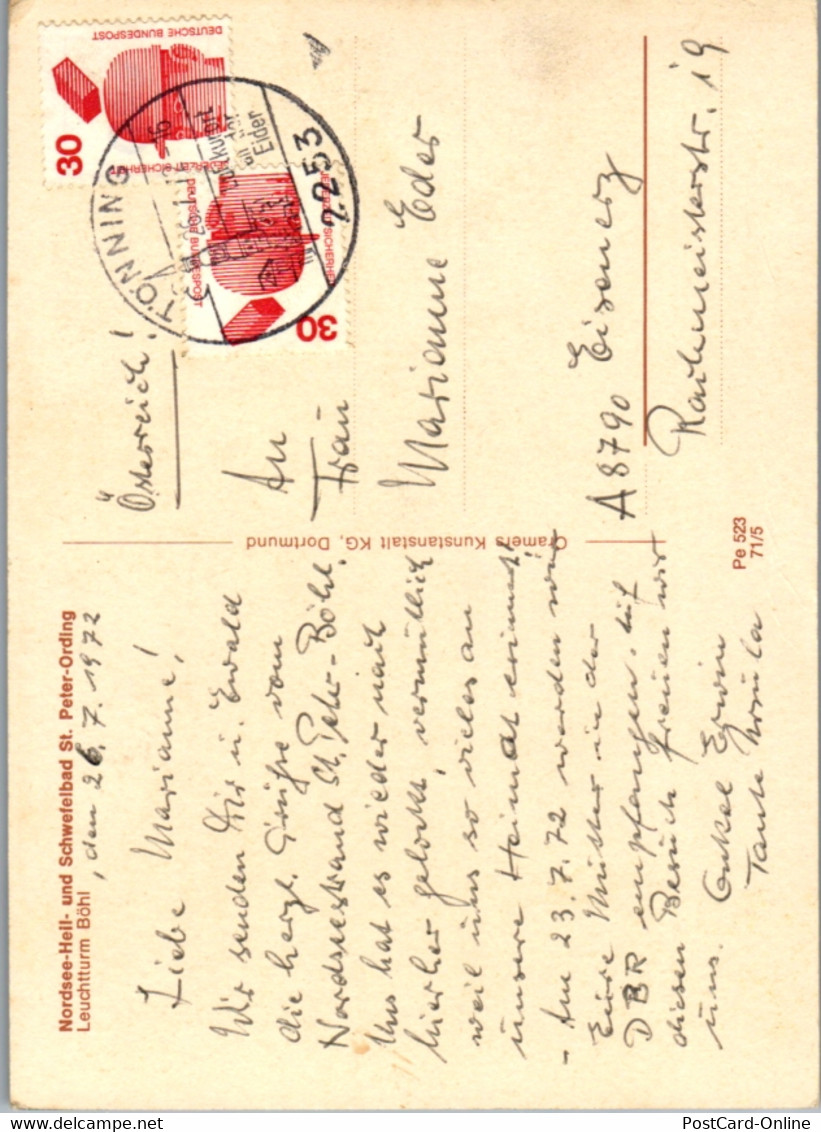 Nordsee-Heil- und Schwefelbad St. Peter-Ording
Leuchtturm Böhl
, den 26.7.1972
Liebe Marianne!
Wir senden Dir u. Ewald
die herzl. Grüße vom
Nordseestrand St. Peter-Böhl.
Uns hat es wieder nach
hierher gelockt, vermutlich
weil uns so vieles an
unsere Heimat erinnert!
- Am 23.7.72 werden wir
Eure Mutter in der
DBR empfangen. Auf
diesen Besuch freuen wir
uns. Onkel Erwin
Tante Ursula
Cramers Kunstanstalt KG, Dortmund
Pe 523
71/5
Österreich!
An
Frau
Marianne Eder
A 8790 Eisenerz
19
30
DEUTSCHE BUNDESPOST
JEDERZEIT SICHERHEIT
30
DEUTSCHE BUNDESPOST
JEDERZEIT SICHERHEIT
2253
TÖNNING
Luftkurort
an der
Eider
PostCard-Online